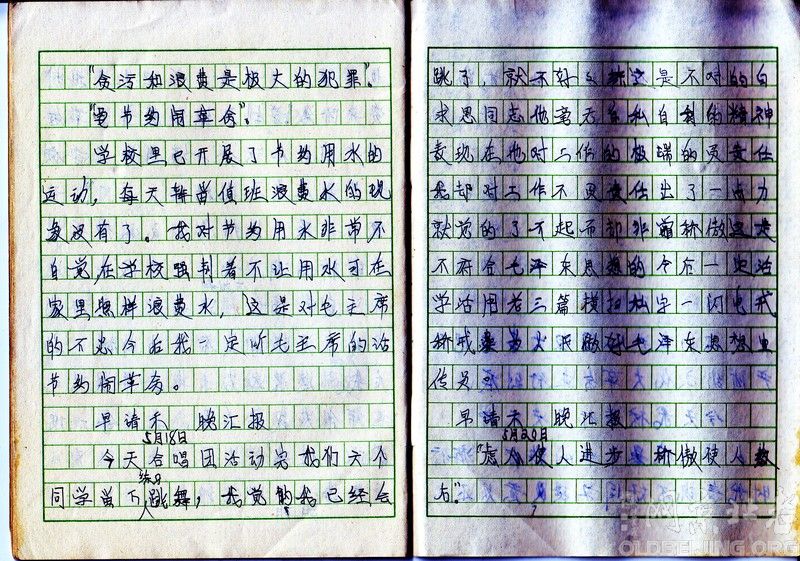 "贪污和浪费是极大的犯罪"。
"要节约闹革命"。
学校里已开展了节约用水的
运动，每天都有值班浪费水的现
象没有了。我对节约用水非常不
自觉在学校强制着不让用水可在
家里照样浪费水，这是对毛主席
的不忠今后我一定听毛主席的话
节约闹革命。
早请示 晚汇报
5月18日
今天合唱团活动完我们六个
练习
同学留下跳舞，我觉的我已经会
跳了，就不好 是不对的白
求恩同志他毫无自私自利的精神
表现在他对工作的极端的负责任
我却对工作不负责任出了一点力
就觉的了不起而却非 骄傲这是
不符合毛泽东思想的今后一定活
学活用老三篇 私字一闪 戒
骄戒躁 做好毛泽东思想宣
传员。
早请示 晚汇报
5月20日
"虚心使人进步 骄傲使人
后"。
OLDBEIJING.ORG